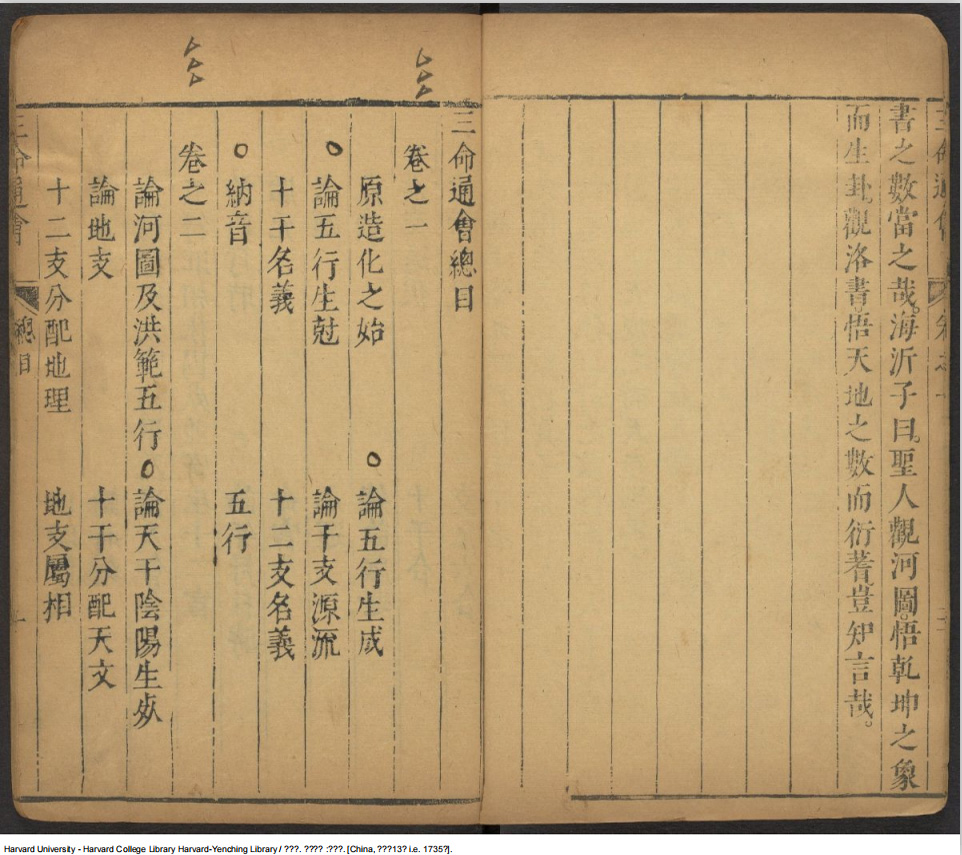 三命通會
書之數當之哉。海沂子曰。聖人觀河圖。悟乾坤之象
而生卦。觀洛書。悟天地之數而衍蓍。豈知言哉。
三命通會總目
卷之一
原造化之始　○論五行生成
○論五行生尅　論干支源流
十干名義　十二支名義
○納音　五行
卷之二
論河圖及洪範五行　○論天干陰陽生死
論地支　十干分配天文
十二支分配地理　地支屬相
三命通會　總目
Harvard University - Harvard College Library Harvard-Yenching Library / ???. ???? :???. [China, ???13? i.e. 1735?].